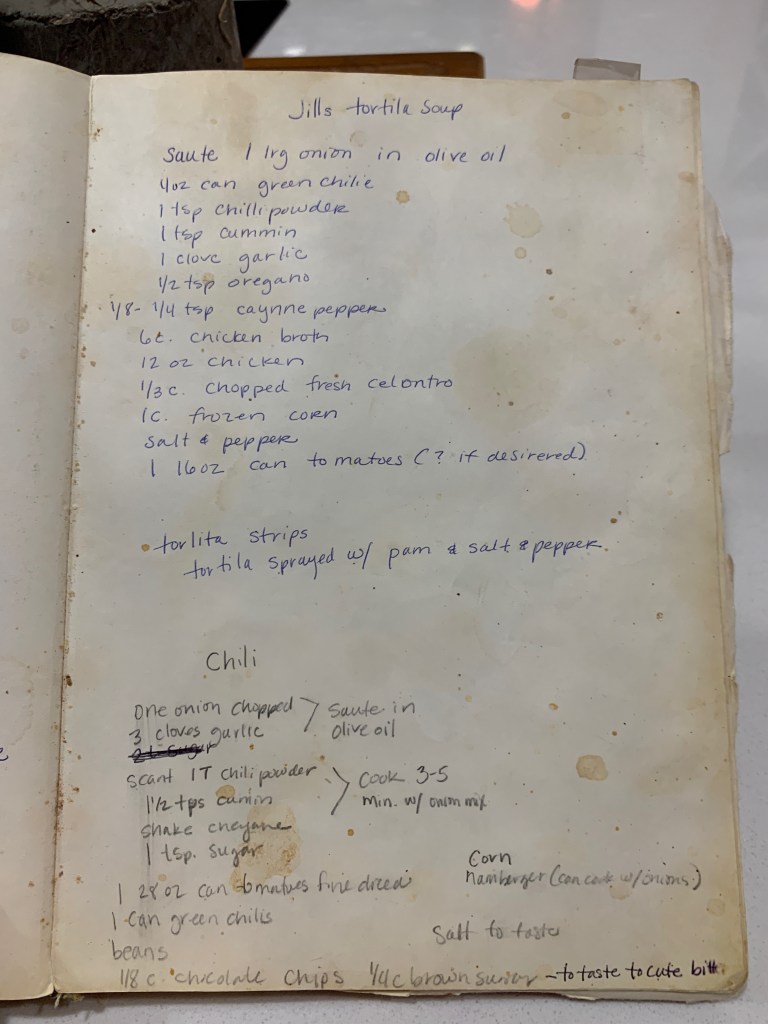 Jills tortila soup
saute 1 lrg onion in olive oil
4oz can green chilie
1 tsp chilli powder
1 tsp cummin
1 clove garlic
1/2 tsp oregano
1/8- 1/4 tsp caynne pepper
6c. chicken broth
12 oz chicken
1/3 c. chopped fresh celontro
1c. frozen corn
salt & pepper
1 16oz can tomatoes (? if desirered)
torlita strips
tortila sprayed w/ pam & salt & pepper.
Chili
one onion chopped
3 cloves garlic
saute in
olive oil
scant 1T chili powder
1 1/2 tps cumin
cook 3-5
min. w/ onion mix
shake cheyane
1 tsp. sugar
1 28 oz can tomatoes fine diced
1 can green chilis
beans
Corn
hamberger (can cook w/ onions)
Salt to taste
1/8 c. chocolate chips 1/4 c brown sugar - to taste to cute bitt